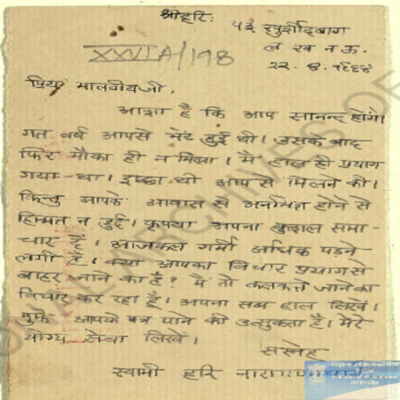 श्रीहरि:
५२ खुर्शीदबाग
लखनऊ.
XXVIA/198
२२. ४. १९६४
प्रिय मालवीयजी,
आशा है कि आप सानन्द होंगे।
गत वर्ष आपसे भेंट हुई थी। उसके बाद
फिर मौका ही न मिला। मैं हाल ही प्रयाग
गया था। इच्छा थी आप से मिलने की।
किन्तु आपके आवास से अनभिज्ञ होने से
हिम्मत न हुई। कृपया अपना कुशल समा-
चार दें। आजकल गर्मी अधिक पड़ने
लगी है। क्या आपका विचार प्रयाग से
बाहर जाने का है? मैं तो कलकत्ते जाने का
विचार कर रहा हूँ। अपना सब हाल लिखें।
मुझे आपके पत्र पाने की उत्सुकता है। मेरे
योग्य सेवा लिखें।
सस्नेह
स्वामी हरि नारायणानन्द